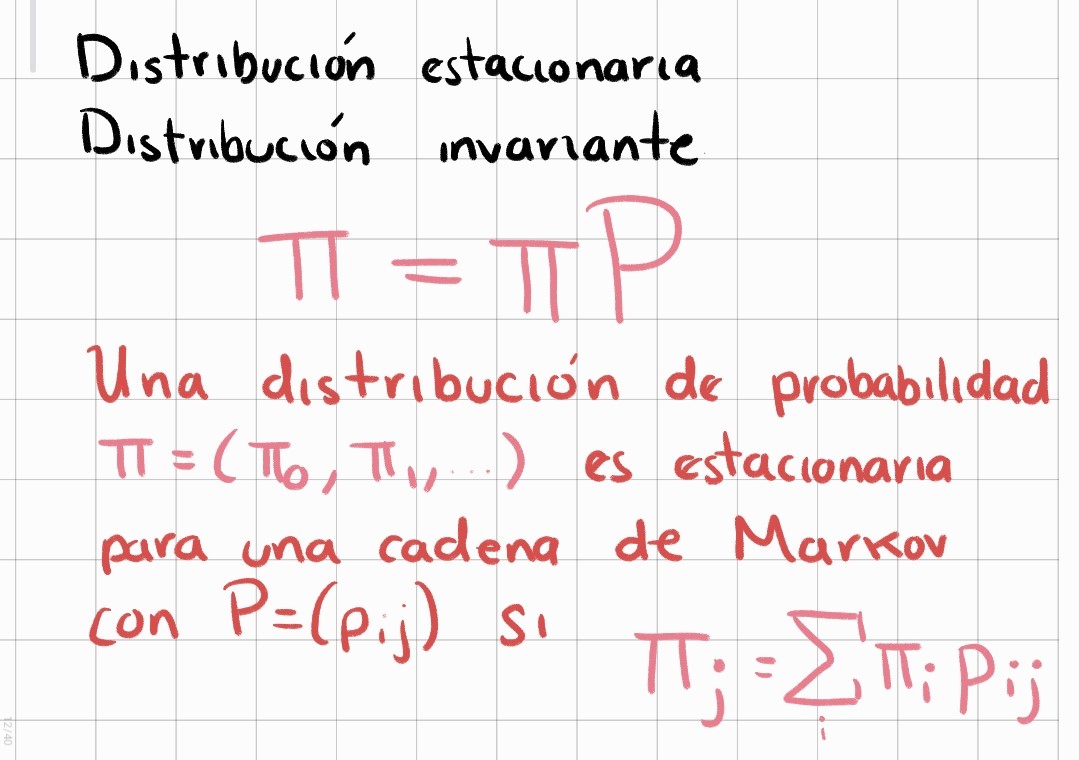 Distribución estacionaria
Distribución invariante
π = πP
Una distribución de probabilidad
π = (π₀, π₁, ...) es estacionaria
para una cadena de Markov
con P=(pᵢⱼ) si
πⱼ = ∑ᵢ πᵢ pᵢⱼ
12/40